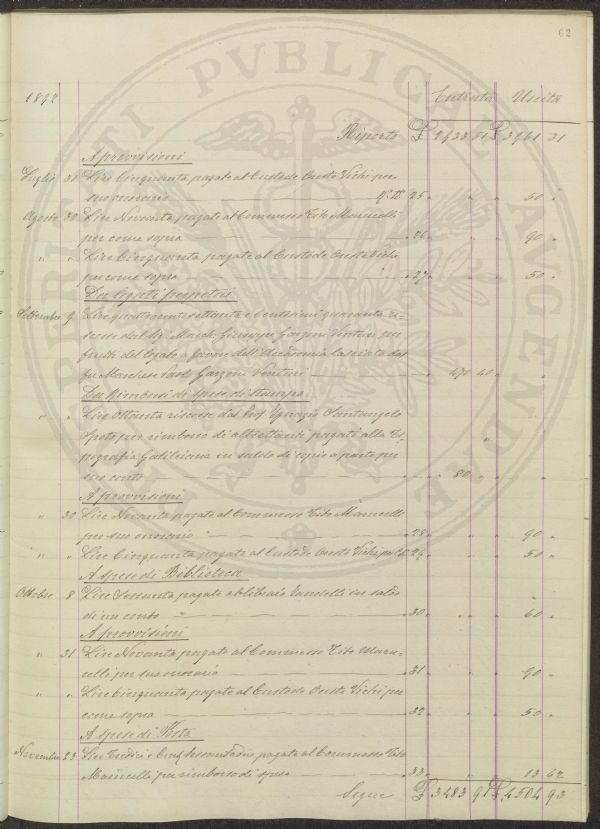 62
1892 Entrata Uscita
Riporto £ 2933 51 £ 3961 31
A provvisioni
Luglio 31 Lire Cinquanta pagate al Custode Oreste Vichi per
suo onorario 25 " " " 50 "
Agosto 30 Lire Novanta pagate al Commesso Tito Marucelli
per come sopra " 26 " " " 90 "
" " Lire Cinquanta pagate al Custode Oreste Vichi
per come sopra " 27 " " " 50 "
Da legati perpetui
Settembre 9 Lire quattrocento settanta e centesimi quaranta ri-
scosse dal Sig. March. Giuseppe Garzoni Venturi per
frutti del legato a favore dell'Accademia lasciato dal
fu Marchese Paolo Garzoni Venturi 470 40
Da Rimborsi di spese di stampa
" " Lire Ottanta riscosse dal Prof Ignazio Santangelo
Spoto per rimborso di altrettanti pagati alla Ti-
pografia Galileiana in saldo di copie a parte per
suo conto 80 "
A provvisioni
" 30 Lire Novanta pagate al Commesso Tito Marucelli
per suo onorario " 28 " " " 90 "
" " Lire Cinquanta pagate al Custode Oreste Vichi 29 " " " 50 "
A spese di Biblioteca
Ottobre 8 Lire Sessanta pagate al libraio in saldo
di un conto " 30 " " " 60 "
A provvisioni
" 31 Lire Novanta pagate al Commesso Tito Maru-
celli per suo onorario " 31 " " " 90 "
" " Lire Cinquanta pagate al Custode Oreste Vichi per
come sopra " 32 " " " 50 "
A spese di Posta
Novembre 23 Lire Tredici e Cent. Sessantadue pagate al Commesso Tito
Marucelli per rimborso di spese " 33 " " " 13 62
Segue £ 3483 91 £ 4504 93